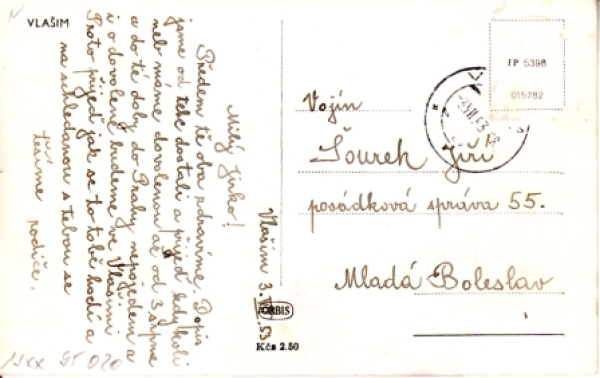 VLAŠIM
Vlašim 3.VII.53
Milý Jirko!
Předem tě oba zdravíme. Dopis
jsme od tebe dostali a přijeď kdykoli
neb máme dovolenou až od 3 srpna
a do té doby do Prahy nepojedem a
i o dovolené budeme ve Vlašimi
Proto přijeď jak se to tobě hodí a
na schledanou s tebou se
těšíme rodiče.
FP 5398
015782
Vojín
Šourek Jiří
posádková správa 55.
Mladá Boleslav
ORBIS
Kčs 2.50